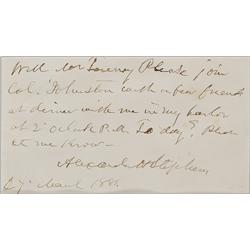 Will Mr Please join
Col. Johnston with a few friends
at dinner with me in my parlor
at 2 oclock P.M. To day? Please
let me know—
Alexander H Stephens
27 March 1881